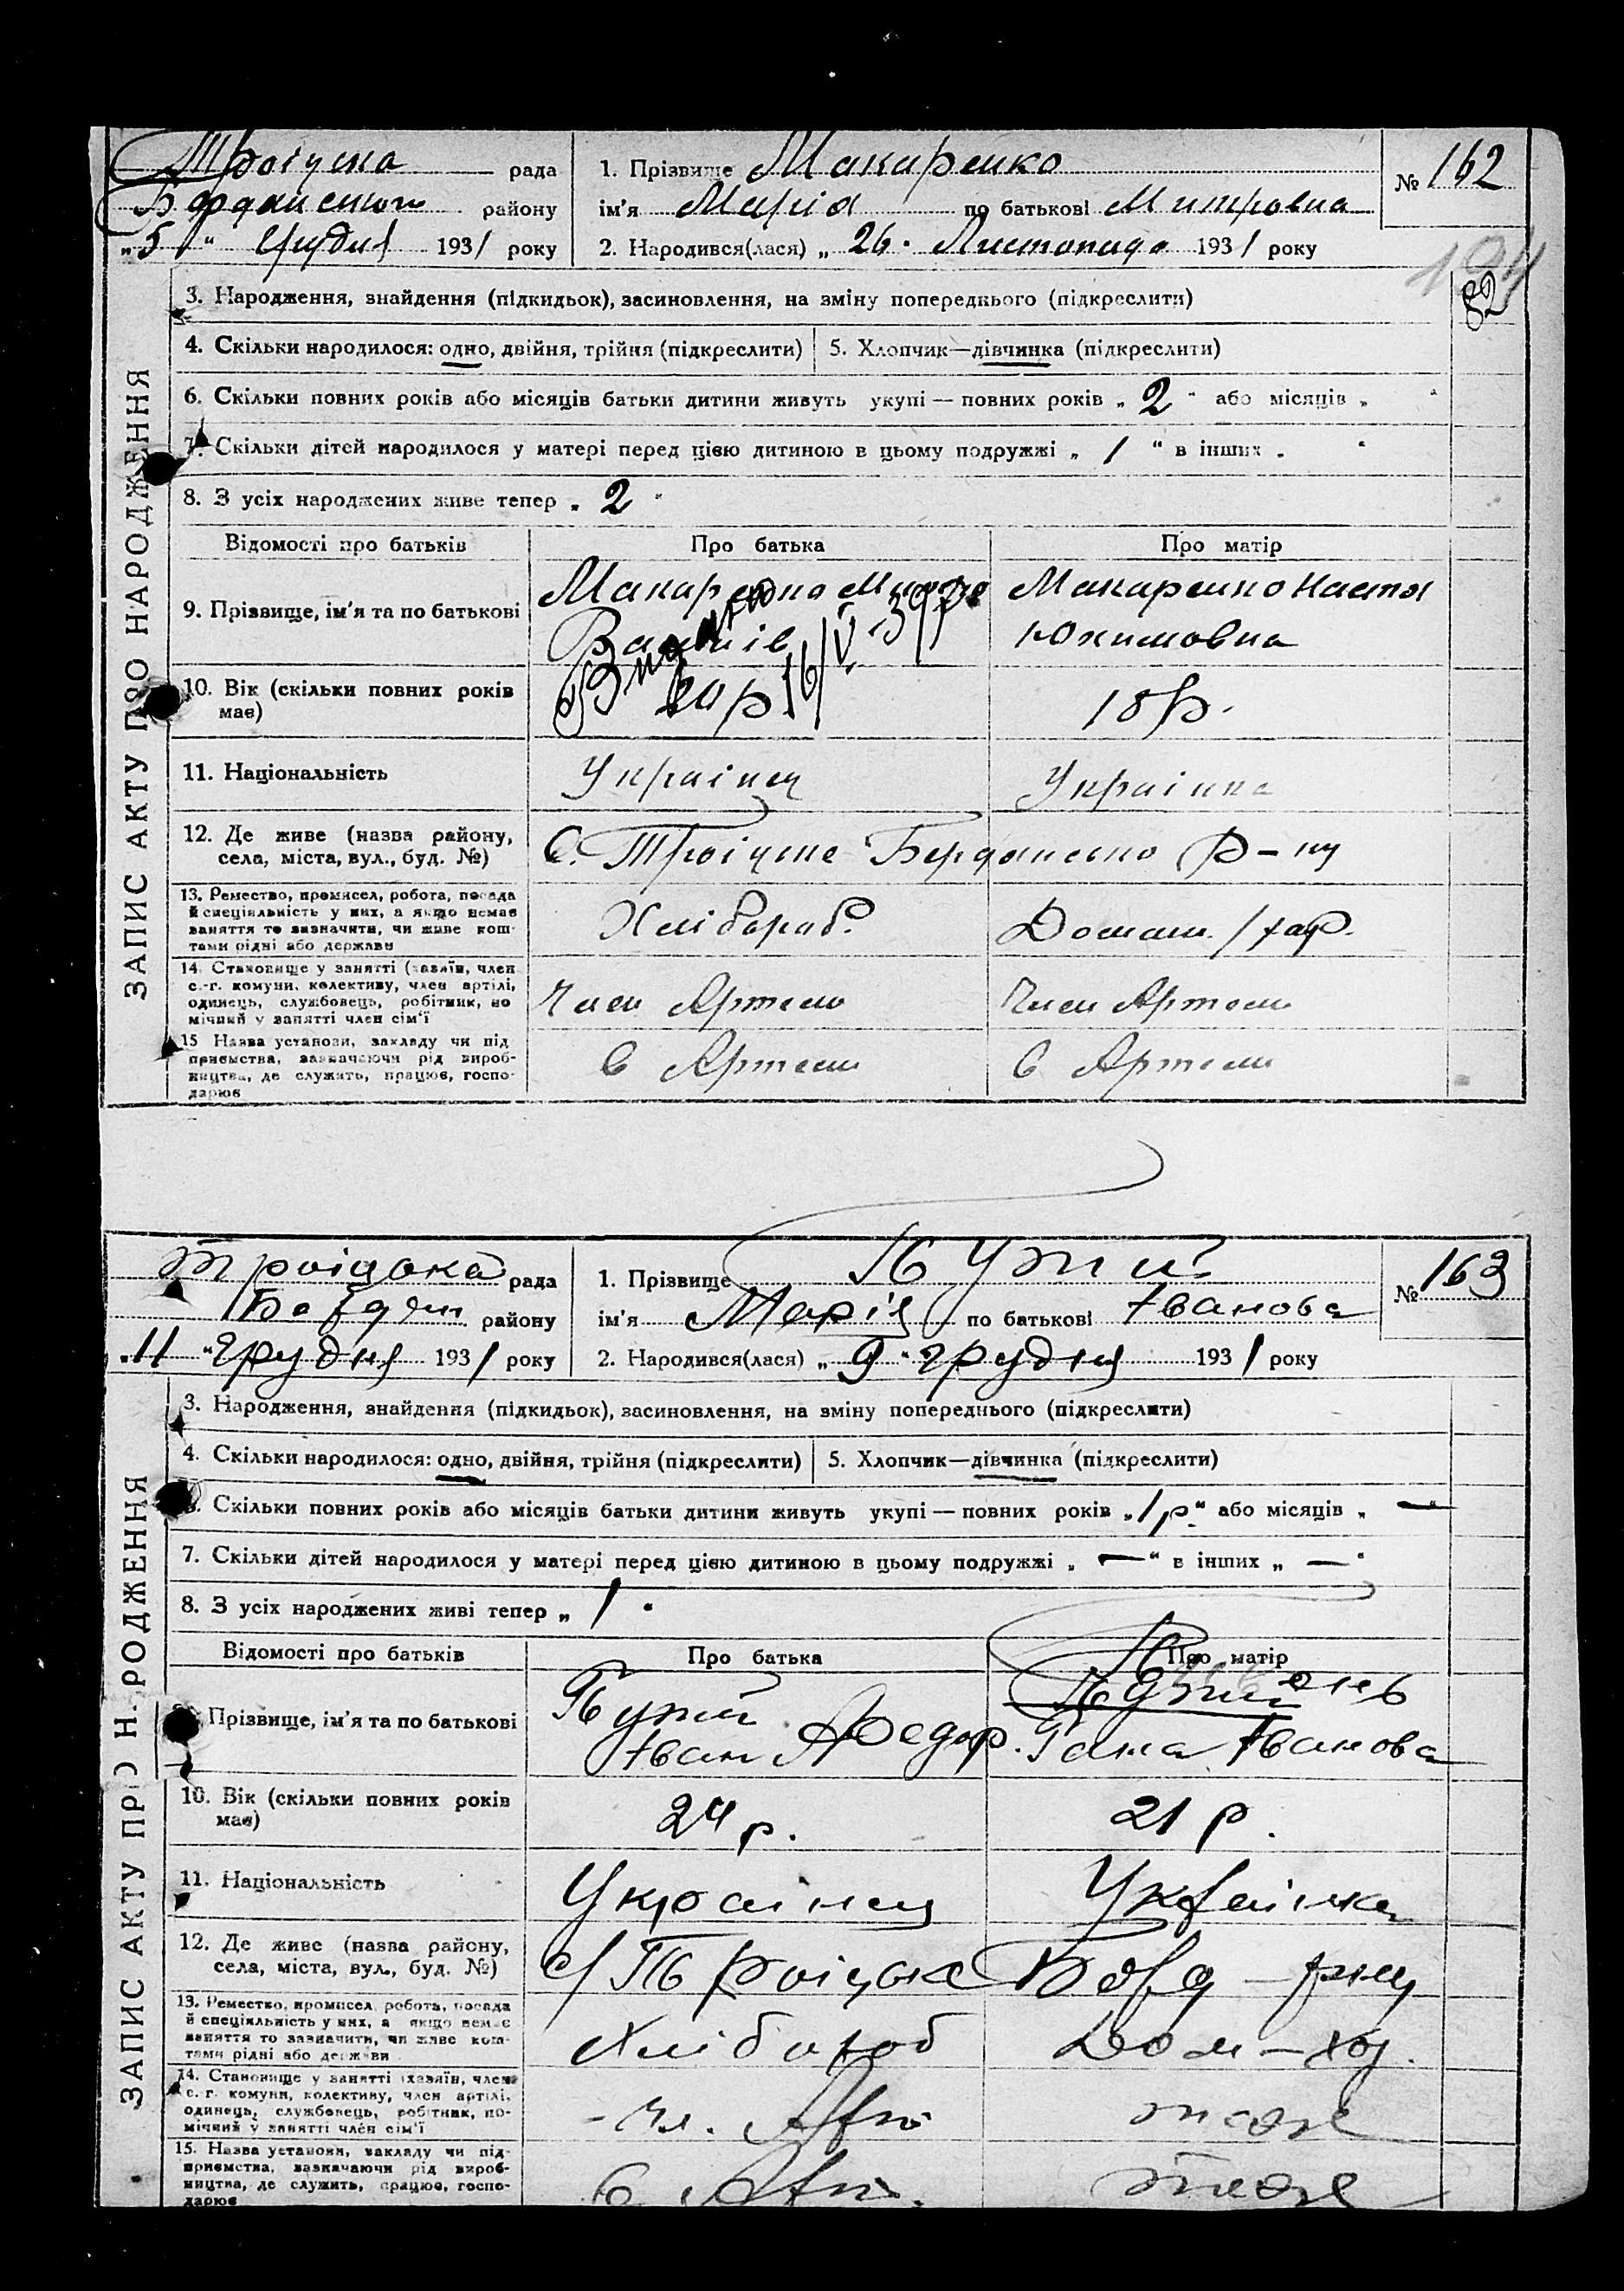 Троіцька рада
Бердянського району
„5“ Грудня 1931 року
1. Прізвище Макаренко
ім'я Марія по батькові Митровна
2. Народився(лася) „26“ Листопада 1931 року
№ 162
82
3. Народження, знайдення (підкидьок), засиновлення, на зміну попереднього (підкреслити)
4. Скільки народилося: одно, двійня, трійня (підкреслити) 5. Хлопчик—дівчинка (підкреслити)
6. Скільки повних років або місяців батьки дитини живуть укупі — повних років „2“ або місяців „ “
7. Скільки дітей народилося у матері перед цією дитиною в цьому подружжі „1“ в інших „ “
8. З усіх народжених живе тепер „2“
ЗАПИС АКТУ ПРО НАРОДЖЕННЯ
Відомості про батьків Про батька Про матір
9. Прізвище, ім'я та по батькові
Макаренко
Макаренко Настя
Юхимовна
16/V 39
10. Вік (скільки повних років
має)
20 р.
18 р.
11. Національність Українец Українка
12. Де живе (назва району,
села, міста, вул., буд. №)
С. Троіцьке Бердянсько р-ну
13. Ремество, промисел, робота, посада
й спеціяльність у них, а якщо немає
заняття то зазначити, чи живе кош-
тами рідні або держави
Хлібороб. Домаш./хаз.
14. Становище у занятті (хазяїн, член
с.-г. комуни, колективу, член артілі,
одинець, службовець, робітник, по
мічний у занятті член сім'ї
Член Артели Член Артели
15 Назва установи, закладу чи під
приємства, зазначаючи рід вироб-
ництва, де служить, працює, госпо-
дарює
в Артели в Артели
Троіцька рада
Бердян району
„11“ Грудня 1931 року
1. Прізвище Пужий
ім'я Марія по батькові Іванова
2. Народився(лася) „9“ грудня 1931 року
№ 163
3. Народження, знайдення (підкидьок), засиновлення, на зміну попереднього (підкреслити)
4. Скільки народилося: одно, двійня, трійня (підкреслити) 5. Хлопчик—дівчинка (підкреслити)
Скільки повних років або місяців батьки дитини живуть укупі — повних років „1 р.“ або місяців „—“
7. Скільки дітей народилося у матері перед цією дитиною в цьому подружжі „—“ в інших „—“
8. З усіх народжених живі тепер „1“
ЗАПИС АКТУ ПРО Н РОДЖЕННЯ
Відомості про батьків Про батька Про матір
Прізвище, ім'я та по батькові
Пужий
Іван Федор.
Пужий
Гана Іванова
10. Вік (скільки повних років
має)
24 р.
21 р.
11. Національність Українец Українка
12. Де живе (назва району,
села, міста, вул., буд. №)
с/Троіцьке Берд – рну
13. Ремество, промисел, робота, посада
й спеціяльність у них, а якщо немає
заняття то зазначити, чи живе кош-
тами рідні або держави
Хлібороб Дом – хоз.
14. Становище у занятті (хазяїн, член
с.-г. комуни, колективу, член артілі,
одинець, службовець, робітник, по-
мічний у занятті член сім'ї
чл. Арт. тоже
15. Назва установи, закладу чи під-
приємства, зазначаючи рід вироб-
ництва, де служить, працює, госпо-
дарює
в Арт. тоже